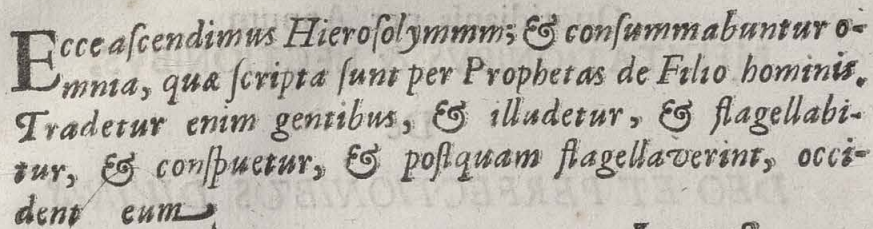 Ecce aſcendimus Hieroſolymmm; & conſummabuntur o-
mnia, quæ ſcripta ſunt per Prophetas de Filio hominis.
Tradetur enim gentibus, & illudetur, & flagellabi-
tur, & conſpuetur, & poſtquam flagellaverint, occi-
dent eum